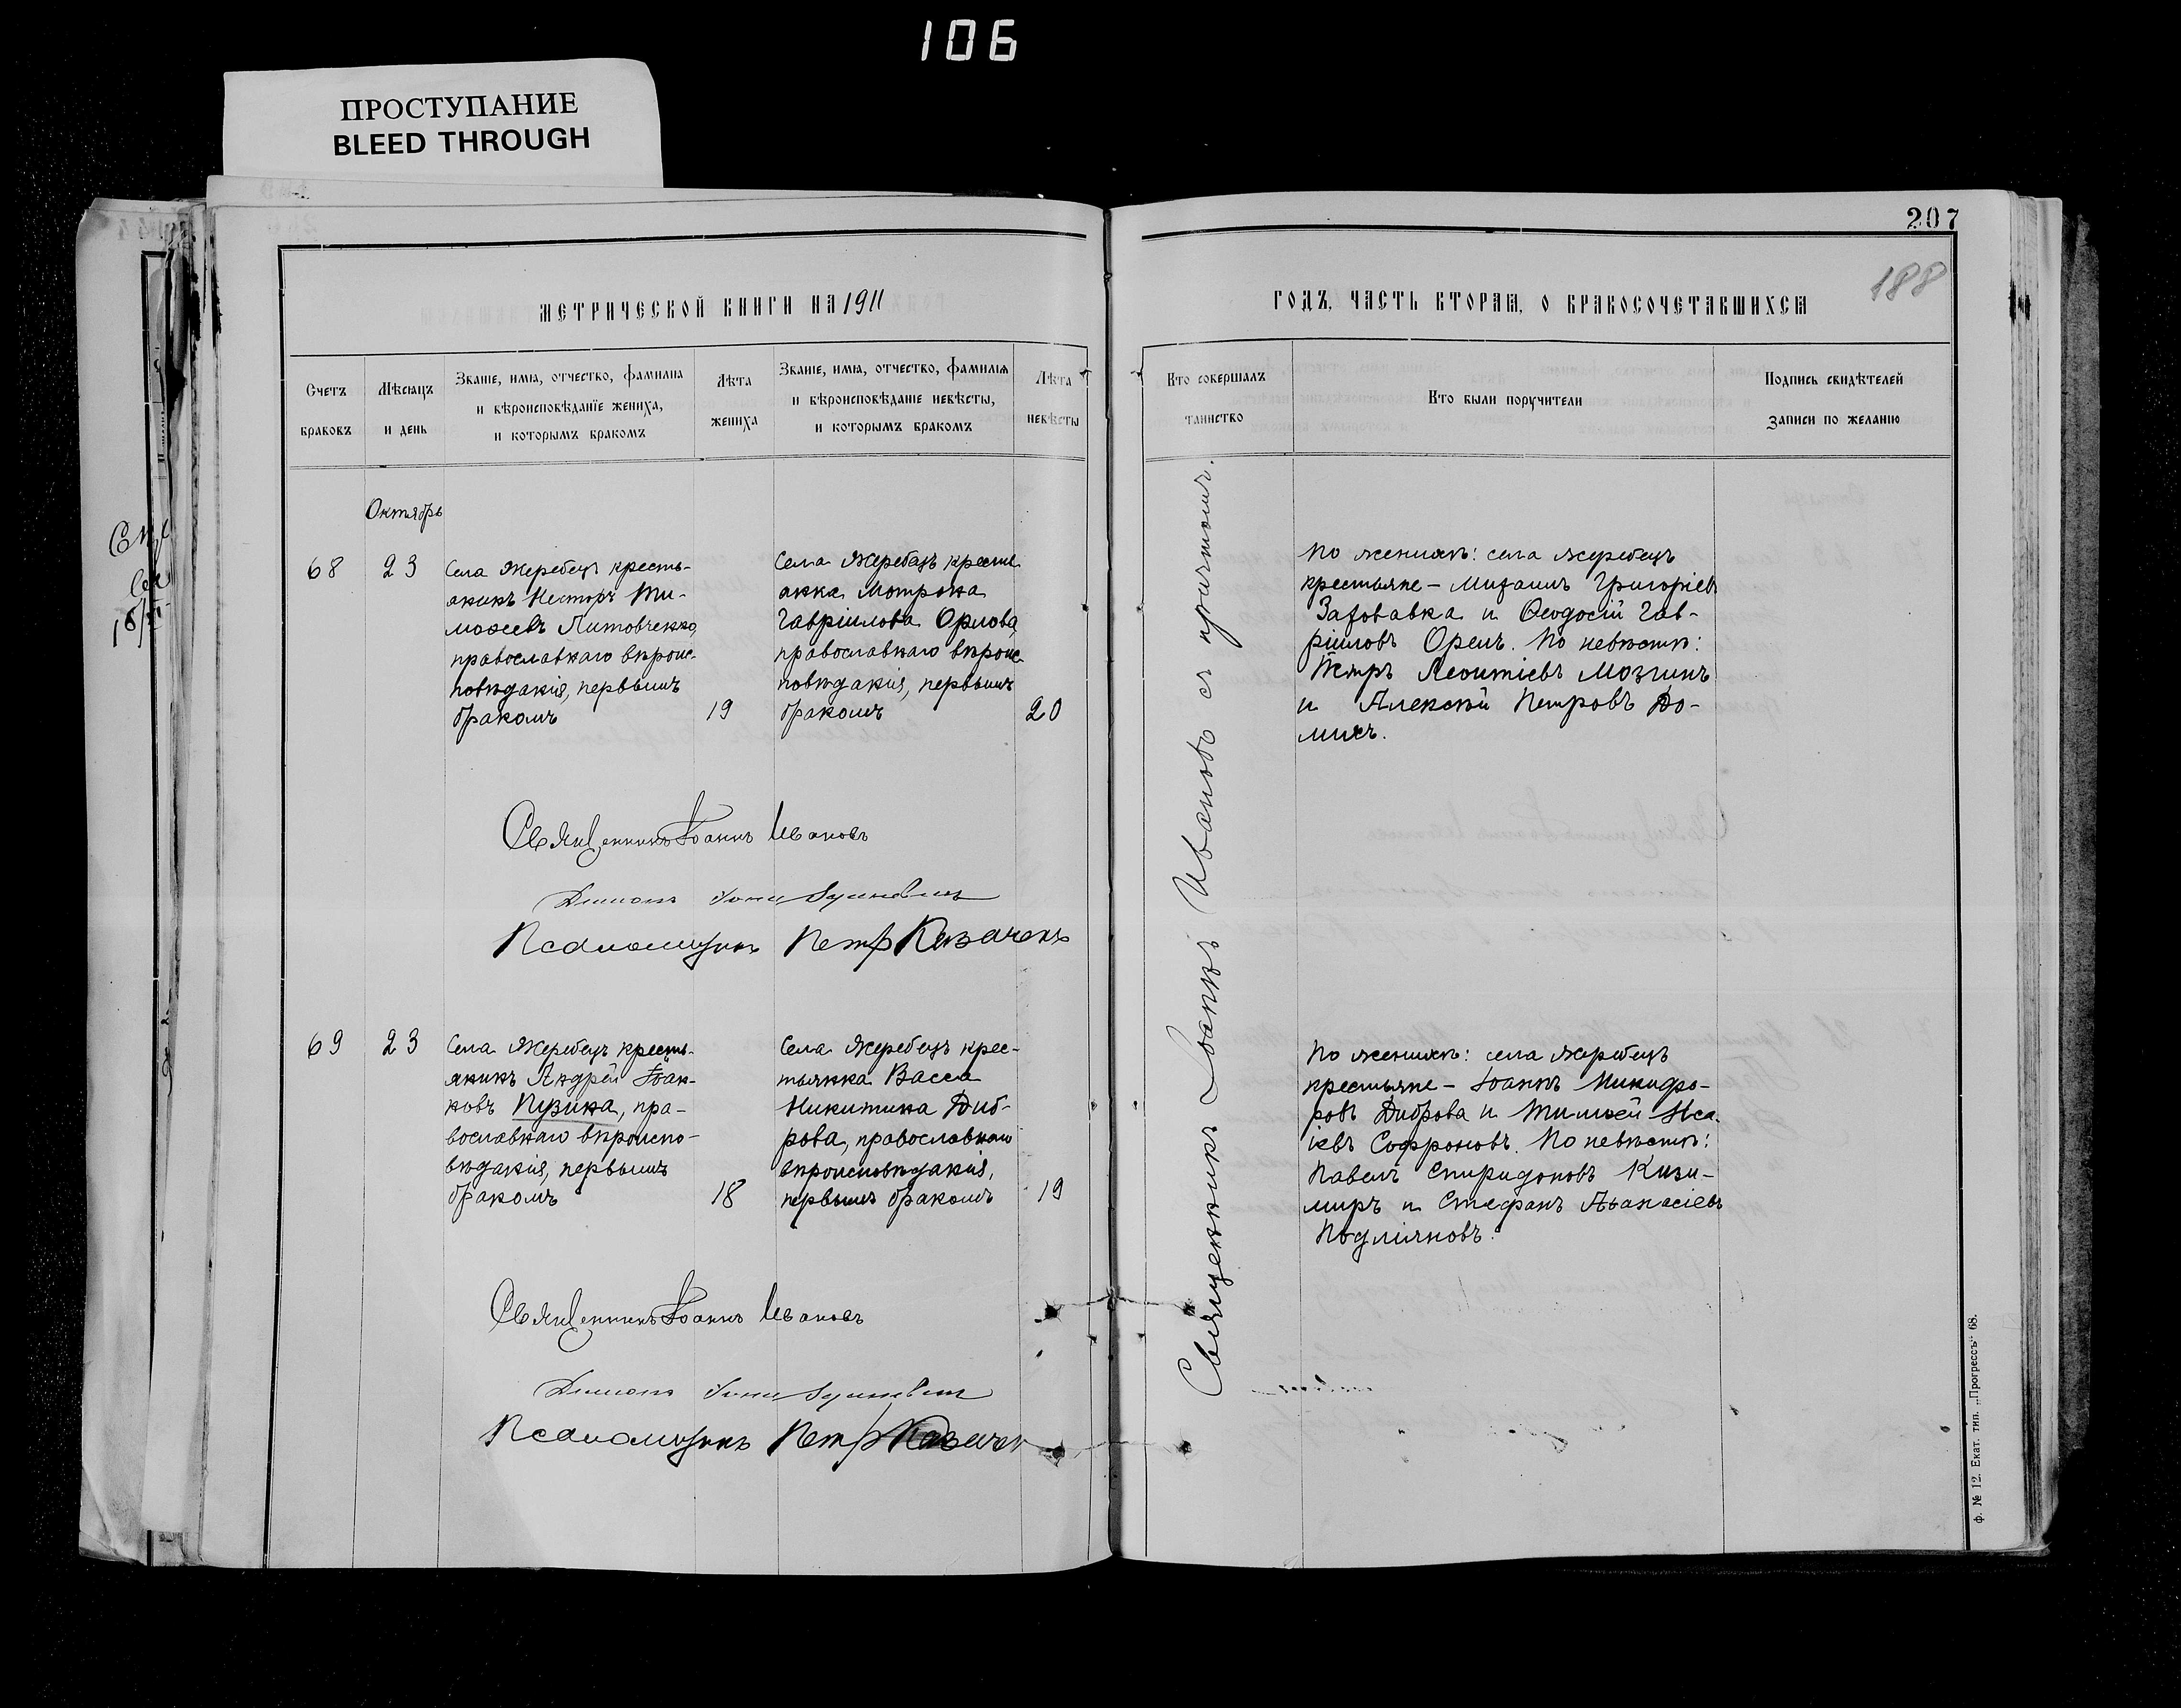 106
ПРОСТУПАНИЕ
BLEED THROUGH
207
188
МЕТРИЧЕСКОЙ КНИГИ НА 1911
ГОДЪ, ЧАСТЬ ВТОРАЯ, О БРАКОСОЧЕТАВШИХСЯ
Счетъ
браковъ
Мѣсяцъ
и день
Званіе, имя, отчество, фамилія
и вѣроисповѣданіе жениха,
и которымъ бракомъ
Лѣта
жениха
Званіе, имя, отчество, фамилія
и вѣроисповѣданіе невѣсты,
и которымъ бракомъ
Лѣта
невѣсты
Кто совершалъ
таинство
Кто были поручители
Подпись свидѣтелей
записи по желанію
Октябрь
68
23
Села Жеребецъ кресть-
янинъ Несторъ Ти-
моѳеевъ Литовченко,
православнаго вѣроис-
повѣданія, первымъ
бракомъ
19
Села Жеребецъ кресть-
янка Мотрона
Гавріилова Орлова,
православнаго вѣроис-
повѣданія, первымъ
бракомъ
20
Священникъ Іоаннъ Ивановъ съ причтомъ.
По женихѣ: села Жеребецъ
крестьяне – Михаилъ Григоріевъ
и Ѳеодосій Гав-
ріиловъ Орелъ. По невѣстѣ:
Петръ Леонтіевъ Мозгинъ
и Алексѣй Петровъ До-
Священникъ Іоаннъ Ивановъ
Псаломщикъ Петръ Казаченко
69
23
Села Жеребецъ кресть-
янинъ Андрей Іоан-
новъ Пузика, пра-
вославнаго вѣроиспо-
вѣданія, первымъ
бракомъ
18
Села Жеребецъ крес-
тьянка Васса
Никитина Диб-
рова, православнаго
вѣроисповѣданія,
первымъ бракомъ
19
По женихѣ: села Жеребецъ
крестьяне – Іоаннъ Никифо-
ровъ Диброва и Тимоѳей Иса-
іевъ Софроновъ. По невѣстѣ:
Павелъ Спиридоновъ Кизи-
миръ и Стефанъ Аѳанасіевъ
Священникъ Іоаннъ Ивановъ
Псаломщикъ Петръ
ф. № 12. Екат. тип. „Прогрессъ“ 68.